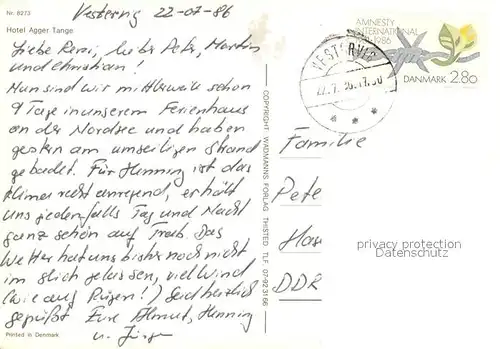 Nr. 8273
Vestervig 22-07-86
Hotel Agger Tange
Liebe Reni, lieber Peter, Martin
und Christian!
Nun sind wir mittlerweile schon
9 Tage in unserem Ferienhaus
an der Nordsee und haben
gestern am umseitigen Strand
gebadet. Für Henning ist das
Klima recht anregend, er hält
uns jedenfalls Tag und Nacht
ganz schön auf Trab. Das
Wetter hat uns bisher noch nicht
im Stich gelassen, viel Wind
(wie auf Rügen!) Seid herzlich
gegrüßt Eure Almut, Henning
u. Jürgen
Printed in Denmark
COPYRIGHT: FORLAG THISTED TLF. 07-92 31 66
VESTERVIG
AMNESTY
INTERNATIONAL
1986
DANMARK 2.80
Familie
Pete
DDR
privacy protection
Datenschutz